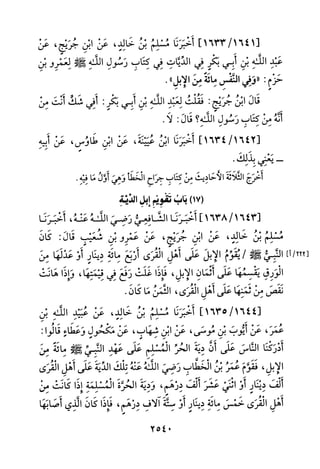 [١٦٣٣/١٦٤١] أَخْبَرَنَا مُسْلِمُ بْنُ خَالِدٍ، عَنْ ابْنِ جُرَيْجٍ، عَنْ
عَبْدِ اللَّهِ بْنِ أَبِي بَكْرٍ فِي الدِّيَّاتِ فِي كِتَابِ رَسُولِ اللَّهِ ﷺ لِعَمْرِو بْنِ
حَزْمٍ: «وَفِي النَّفْسِ مِائَةٌ مِنَ الإِبِلِ».
قَالَ ابْنُ جُرَيْجٍ: فَقُلْتُ لِعَبْدِ اللَّهِ بْنِ أَبِي بَكْرٍ: أَفِي شَكٍّ أَنْتَ مِنْ
أَنَّهُ مِنْ كِتَابِ رَسُولِ اللَّهِ؟ قَالَ: لَا.
[١٦٣٤/١٦٤٢] أَخْبَرَنَا ابْنُ عُيَيْنَةَ، عَنْ ابْنِ طَاوُسٍ، عَنْ أَبِيهِ
ـ يَعْنِي بِذَلِكَ.
أَخْرَجَ الثَّلَاثَةَ الأَحَادِيثَ مِنْ كِتَابِ جِرَاحِ الْخَطَأِ وَهِيَ أَوَّلُ مَا فِيهِ.
(١٧) بَابُ تَقْوِيمِ إِبِلِ الدِّيَةِ
[١٦٣٨/١٦٤٣] أَخْبَرَنَا الشَّافِعِيُّ رَضِيَ اللَّهُ عَنْهُ، أَخْبَرَنَا
مُسْلِمُ بْنُ خَالِدٍ، عَنْ ابْنِ جُرَيْجٍ، عَنْ عَمْرِو بْنِ شُعَيْبٍ قَالَ: كَانَ
النَّبِيُّ ﷺ / يُقَوِّمُ الإِبِلَ عَلَى أَهْلِ الْقُرَى أَرْبَعَ مِائَةِ دِينَارٍ أَوْ عَدْلَهَا مِنَ [٢٢٢/أ]
الْوَرِقِ يَقْسِمُهَا عَلَى أَثْمَانِ الإِبِلِ، فَإِذَا غَلَتْ رَفَعَ فِي قِيْمَتِهَا، وَإِذَا هَانَتْ
نَقَصَ مِنْ ثَمَنِهَا عَلَى أَهْلِ الْقُرَى، الثَّمَنُ مَا كَانَ.
[١٦٣٥/١٦٤٤] أَخْبَرَنَا مُسْلِمُ بْنُ خَالِدٍ، عَنْ عُبَيْدِ اللَّهِ بْنِ
عُمَرَ، عَنْ أَيُّوبَ بْنِ مُوسَى، عَنْ ابْنِ شِهَابٍ، عَنْ مَكْحُولٍ وَعَطَاءٍ قَالُوا:
أَدْرَكْنَا النَّاسَ عَلَى أَنَّ دِيَةَ الْحُرِّ الْمُسْلِمِ عَلَى عَهْدِ النَّبِيِّ ﷺ مِائَةٌ مِنَ
الإِبِلِ، فَقَوَّمَ عُمَرُ بْنُ الْخَطَّابِ رَضِيَ اللَّهُ عَنْهُ تِلْكَ الدِّيَةَ عَلَى أَهْلِ الْقُرَى
أَلْفَ دِيْنَارٍ أَوْ اثْنَيْ عَشَرَ أَلْفَ دِرْهَمٍ، وَدِيَةُ الْحُرَّةِ الْمُسْلِمَةِ إِذَا كَانَتْ مِنْ
أَهْلِ الْقُرَى خَمْسَ مِائَةِ دِينَارٍ أَوْ سِتَّةَ آلَافِ دِرْهَمٍ، فَإِذَا كَانَ الَّذِي أَصَابَهَا
٢٥٤٠